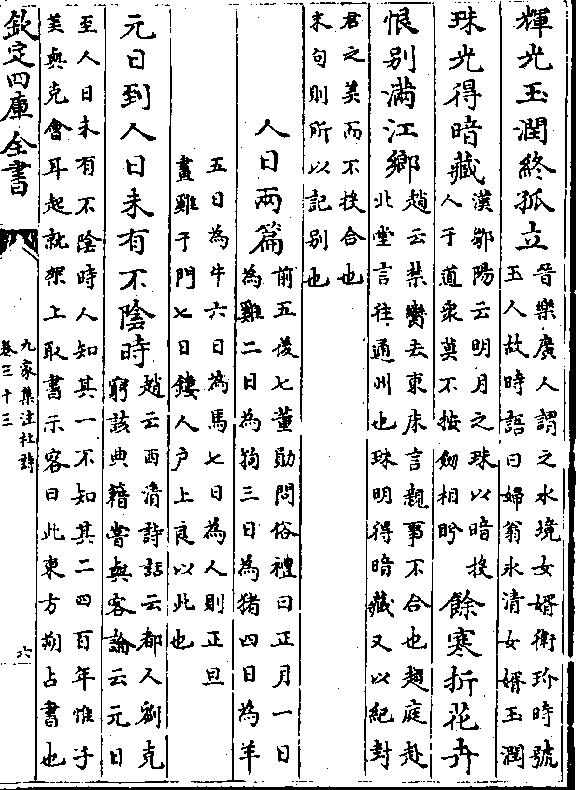 輝光玉潤終孤立
晉樂廣人謂之水境女婿衛玠時號
玉人故時語曰婦翁氷清女婿玉潤
珠光得暗藏
漢鄒陽云明月之珠以暗投
人于道衆莫不按劒相眄
餘寒折花卉
恨别滿江鄉
趙云禁臠去東床言親事不合也趨庭赴
北堂言往通州也珠明得暗藏又以紀封
君之美而不投合也
末句則所以記别也
人日兩篇
前五後七董勛問俗禮曰正月一日
為雞二日為狗三日為猪四日為羊
五日為牛六日為馬七日為人則正旦
畫雞于門七日鏤人户上良以此也
元日到人日未有不陰時
趙云西清詩話云都人劉克
窮該典籍嘗與客論云元日
至人日未有不陰時人知其一不知其二四百年惟子
美與克會耳起就架上取書示客曰此東方朔占書也
欽定四庫全書
九家集注杜詩
卷三十三
六